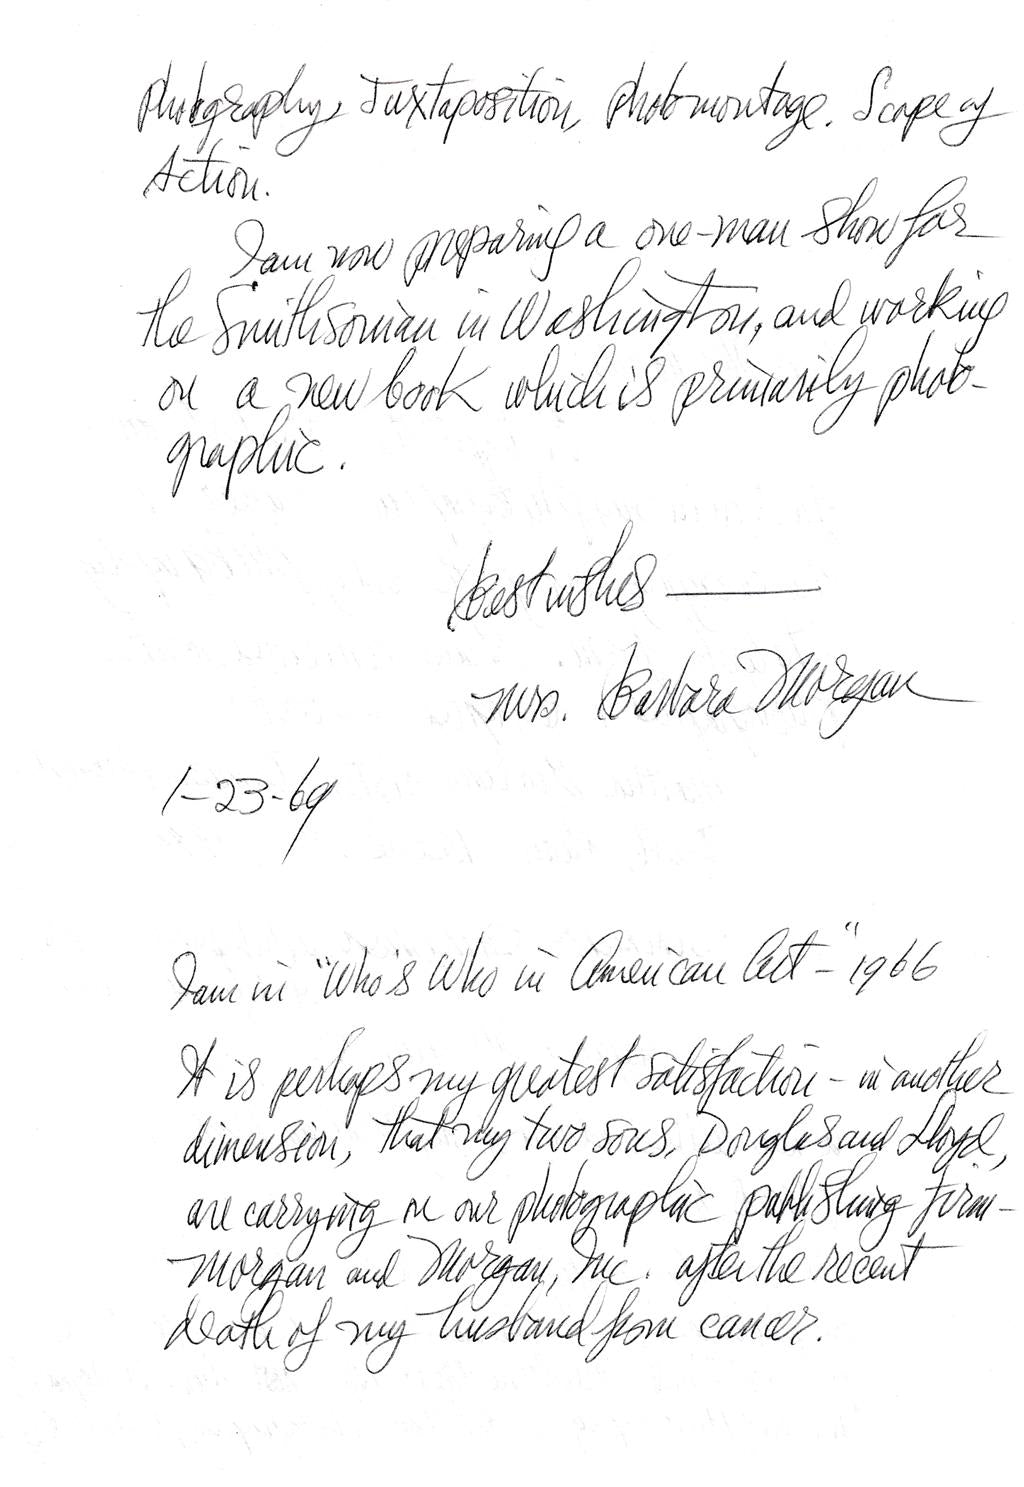 photography, Juxtaposition, photomontage. Scope of
Action.
I am now preparing a one-man show for
the Smithsonian in Washington, and working
on a new book which is primarily photo-
graphic.
Best wishes —
Mrs. Barbara Morgan
1-23-69
I am in "Who's Who in American Art-" 1966
It is perhaps my greatest satisfaction - in another
dimension, that my two sons, Douglas and Lloyd,
are carrying on our photographic publishing firm-
Morgan and Morgan, Inc. after the recent
death of my husband from cancer.